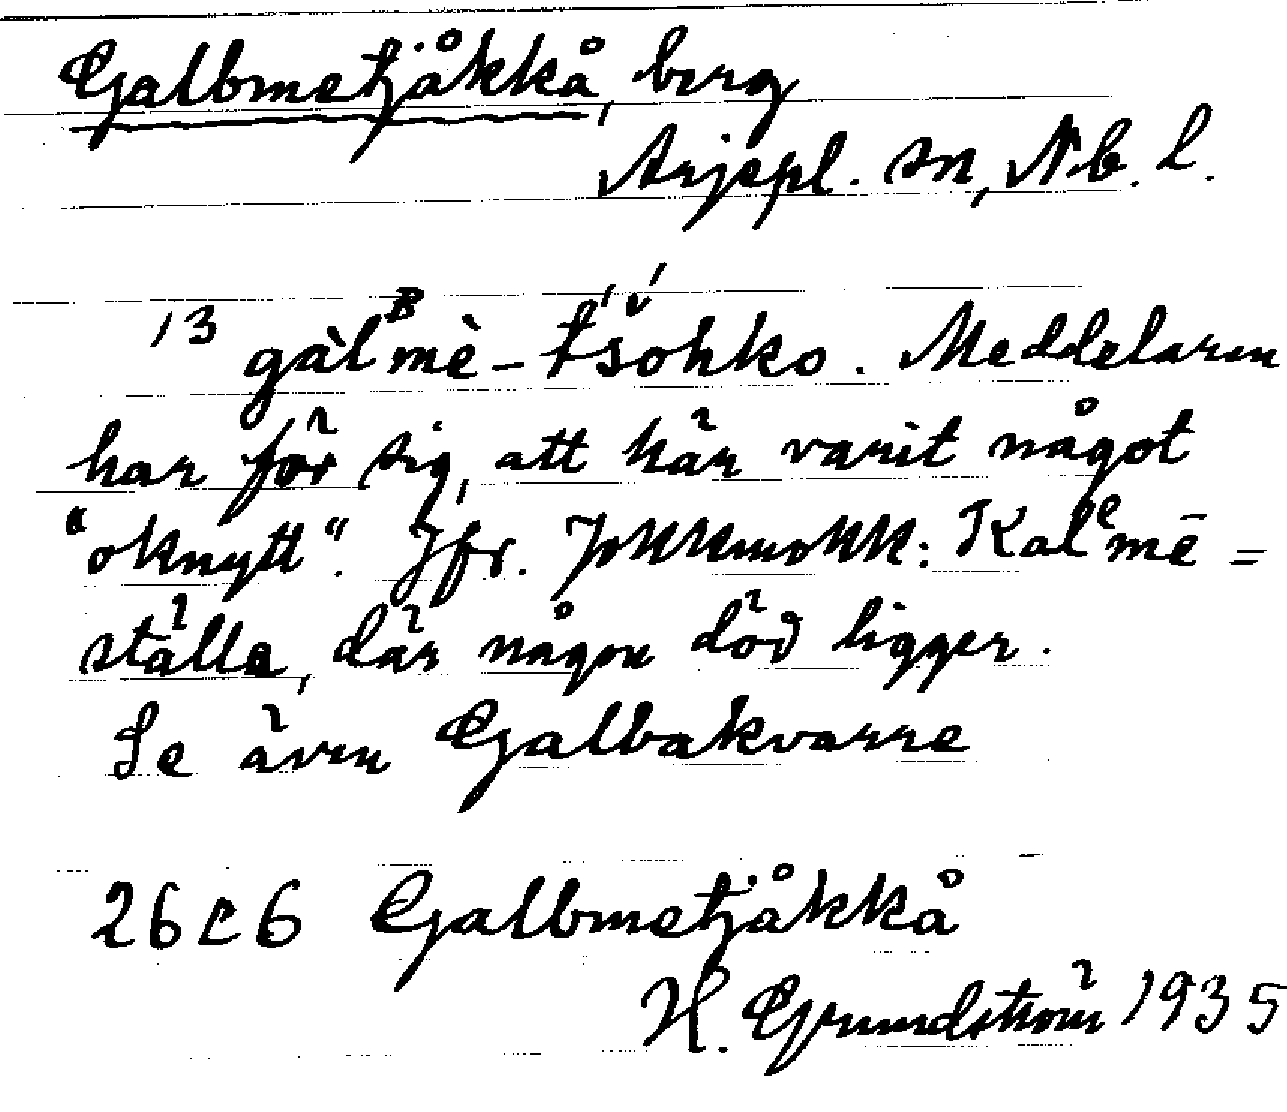 Galbmetjåkkå, berg
Arjepl. sn, Nb. l.
13 gàlᴮmè-t́šohko. Meddelaren
har för sig, att här varit något
"oknytt". Jfr. Jokkmokk: Kalᵉmē =
ställe, där någon död ligger.
Se även Galbakvarre
26 c 6 Galbmetjåkkå
H. Grundström 1935